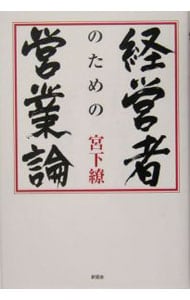 経営者
のための
営業論
宮下繚
新風舎